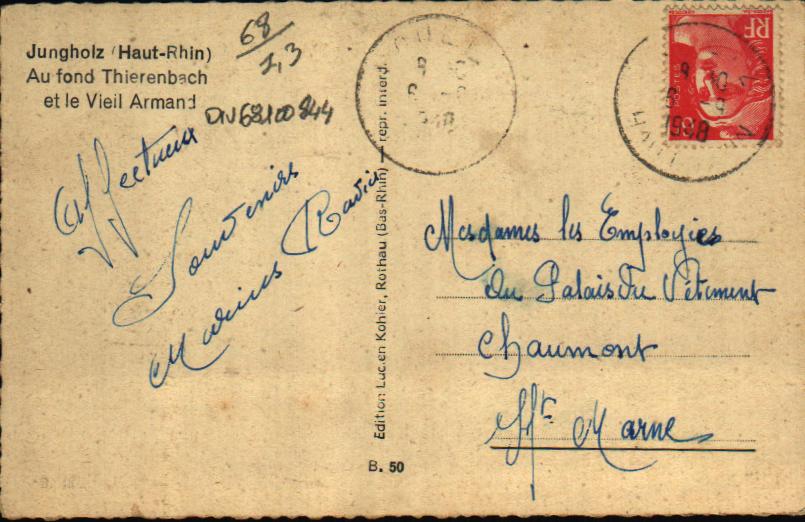 Jungholz (Haut-Rhin)
Au fond Thierenbach
et le Vieil Armand
68
1,3
DIV68100844
Affectueux
Souvenirs
Marius
Edition Lucien Kohler, Rothau (Bas-Rhin) — repr. interd.
B. 50
RF
POSTES
Mesdames les Employées
Du Palais du Vêtement
Chaumont
Hte Marne